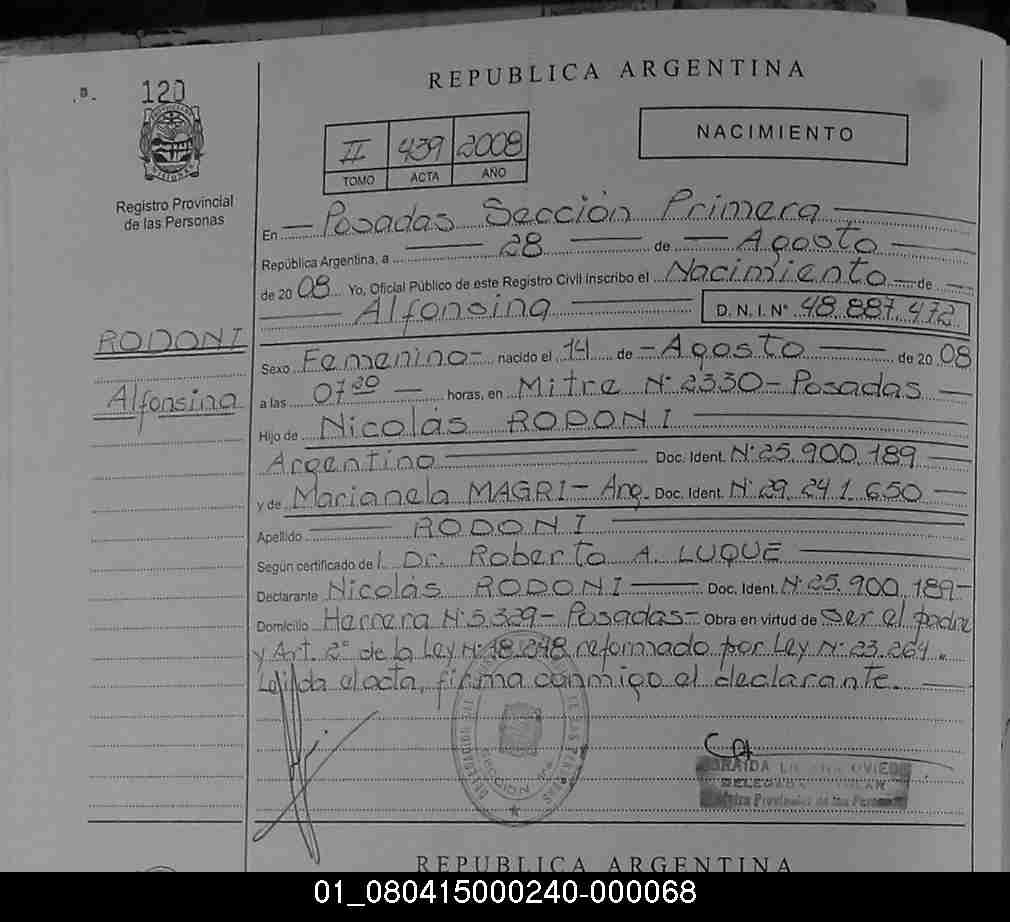 120
REPUBLICA ARGENTINA
II 439 2008
TOMO ACTA AÑO
NACIMIENTO
Registro Provincial
de las Personas
En Posadas Sección Primera
República Argentina, a 28 de Agosto
de 2008 Yo, Oficial Público de este Registro Civil inscribo el Nacimiento de
Alfonsina D.N.I. Nº 48.887.472
RODONI
Alfonsina
Sexo Femenino nacido el 14 de Agosto de 2008
a las 07 20 horas, en Mitre Nº 2330 - Posadas
Hijo de Nicolás RODONI
Argentino Doc. Ident. Nº 25.900.189
y de Marianela MAGRI - Arg. Doc. Ident. Nº 29.241.650
Apellido RODONI
Según certificado de Dr. Roberto A. LUQUE
Declarante Nicolás RODONI Doc. Ident. Nº 25.900.189-
Domicilio Herrera Nº 5.329 - Posadas - Obra en virtud de ser el padre
y Art. 2º de la Ley Nº 18.248 reformado por Ley Nº 23.264.
Leída el acta, firma conmigo el declarante.
REPUBLICA ARGENTINA
01_080415000240-000068